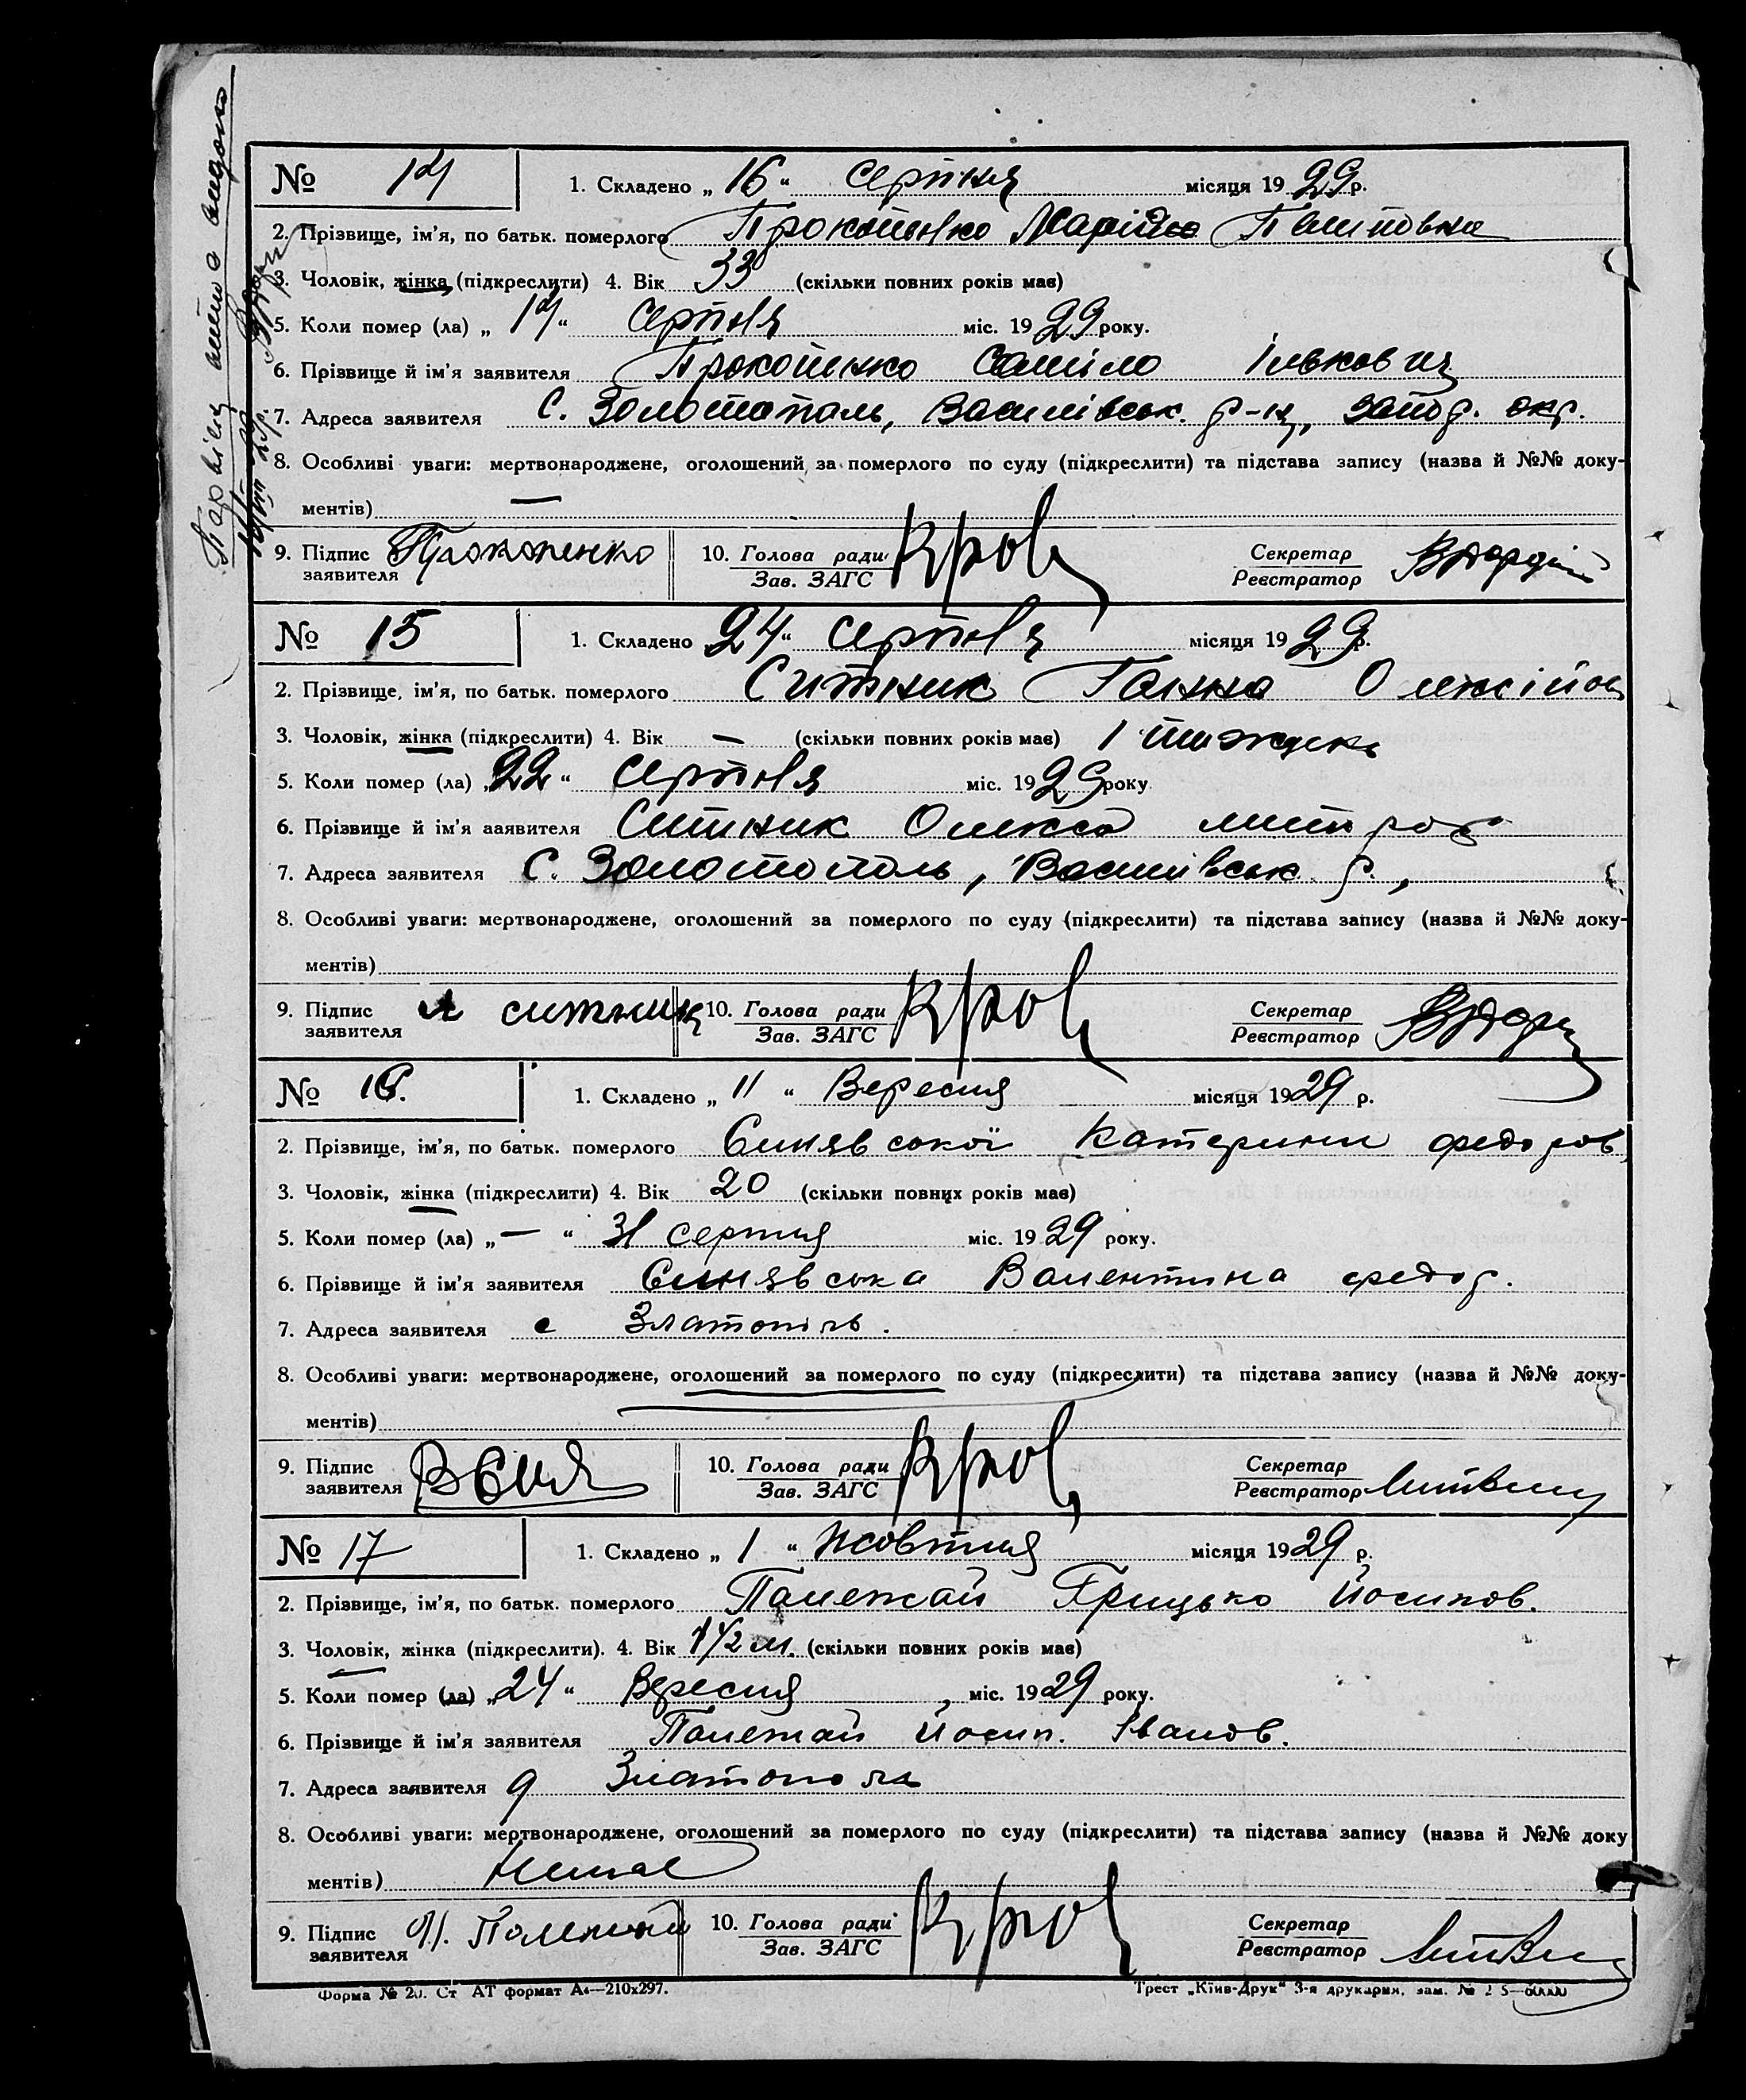 № 14 1. Складено „ 16 “ Серпня місяця 19 29 р.
2. Прізвище, ім'я, по батьк. померлого Прокопенко Марія
3. Чоловік, жінка (підкреслити) 4. Вік 33 (скільки повних років має)
5. Коли помер (ла) „ 14 “ Серпня міс. 19 29 року.
6. Прізвище й ім'я заявителя Прокопенко
7. Адреса заявителя С. Золотополь, Василівськ. р-н, Запор. окр.
8. Особливі уваги: мертвонароджене, оголошений за померлого по суду (підкреслити) та підстава запису (назва й №№ доку-
ментів) —
9. Підпис заявителя Прокопенко 10. Голова ради Зав. ЗАГС Секретар Реєстратор
№ 15 1. Складено 24 “ Серпня місяця 19 29 р.
2. Прізвище, ім'я, по батьк. померлого Ситник Ганна Олексійов
3. Чоловік, жінка (підкреслити) 4. Вік — (скільки повних років має) 1 тиждень
5. Коли помер (ла) „ 22 “ Серпня міс. 19 29 року
6. Прізвище й ім'я заявителя Ситник Олекса Митроф
7. Адреса заявителя С. Золотополь, Василівськ р.,
8. Особливі уваги: мертвонароджене, оголошений за померлого по суду (підкреслити) та підстава запису (назва й №№ доку-
ментів)
9. Підпис заявителя ситник 10. Голова ради Зав. ЗАГС Секретар Реєстратор
№ 16. 1. Складено „ 11 “ Вересня місяця 19 29 р.
2. Прізвище, ім'я, по батьк. померлого Синявської Катерини Федоров
3. Чоловік, жінка (підкреслити) 4. Вік 20 (скільки повних років має)
5. Коли помер (ла) „ — “ 31 серпня міс. 19 29 року.
6. Прізвище й ім'я заявителя Синявська Валентина Федор.
7. Адреса заявителя с Златопіль.
8. Особливі уваги: мертвонароджене, оголошений за померлого по суду (підкреслити) та підстава запису (назва й №№ доку-
ментів)
9. Підпис заявителя 10. Голова ради Зав. ЗАГС Секретар Реєстратор Литвин
№ 17 1. Складено „ 1 “ Жовтня місяця 19 29 р.
2. Прізвище, ім'я, по батьк. померлого Палежай Грицько Йосипов.
3. Чоловік, жінка (підкреслити). 4. Вік 1 1/2 м. (скільки повних років має)
5. Коли помер (ла) „ 24 “ Вересня міс. 19 29 року.
6. Прізвище й ім'я заявителя Палежай Йосип. Іванов.
7. Адреса заявителя Златополь
8. Особливі уваги: мертвонароджене, оголошений за померлого по суду (підкреслити) та підстава запису (назва й №№ доку
ментів) Немає
9. Підпис заявителя Й. Полежай 10. Голова ради Зав. ЗАГС Секретар Реєстратор Литвин
Форма № 20. Ст АТ формат А4—210х297. Трест „Київ-Друк“ 3-я друкарня, зам. №